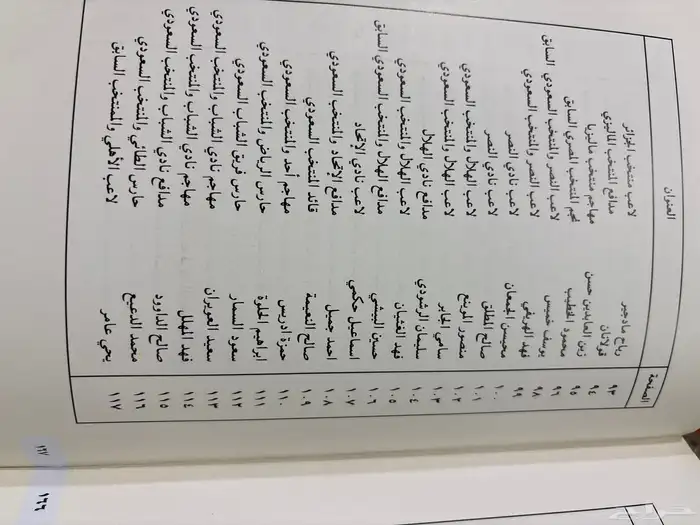 الصفحة العنوان
٩٣ رباح ماجير لاعب منتخب الجزائر
٩٤ فولاتان مدافع المنتخب الماليزي
٩٥ زين العابدين حسن مهاجم منتخب ماليزيا
٩٦ محمود الخطيب نجم المنتخب المصري السابق
٩٨ يوسف خميس لاعب النصر والمنتخب السعودي السابق
٩٩ فهد الهريفي لاعب النصر والمنتخب السعودي
١٠٠ محيسن الجمعان لاعب نادي النصر
١٠١ صالح المطلق لاعب نادي النصر
١٠٢ منصور الموينع لاعب الهلال والمنتخب السعودي
١٠٣ سامي الجابر لاعب الهلال والمنتخب السعودي
١٠٤ سليمان الرشودي مدافع نادي الهلال
١٠٥ فهد الغشيان لاعب الهلال والمنتخب السعودي
١٠٦ حسين البيشي مدافع الهلال والمنتخب السعودي السابق
١٠٧ اسماعيل حكمي لاعب نادي الاتحاد
١٠٨ احمد جميل مدافع الإتحاد والمنتخب السعودي
١٠٩ صالح النعيمة قائد المنتخب السعودي
١١٠ حمزة ادريس مهاجم أحد والمنتخب السعودي
١١١ ابراهيم الحلوة حارس الرياض والمنتخب السعودي
١١٢ سعود السمار حارس فريق الشباب السعودي
١١٣ سعيد العويران مهاجم نادي الشباب والمنتخب السعودي
١١٤ فهد المهلل مهاجم نادي الشباب والمنتخب السعودي
١١٥ صالح الداوود مدافع نادي الشباب والمنتخب السعودي
١١٦ محمد الدعيع حارس الطائي والمنتخب السعودي
١١٧ يحي عامر لاعب الأهلي والمنتخب السابق
١٦٦